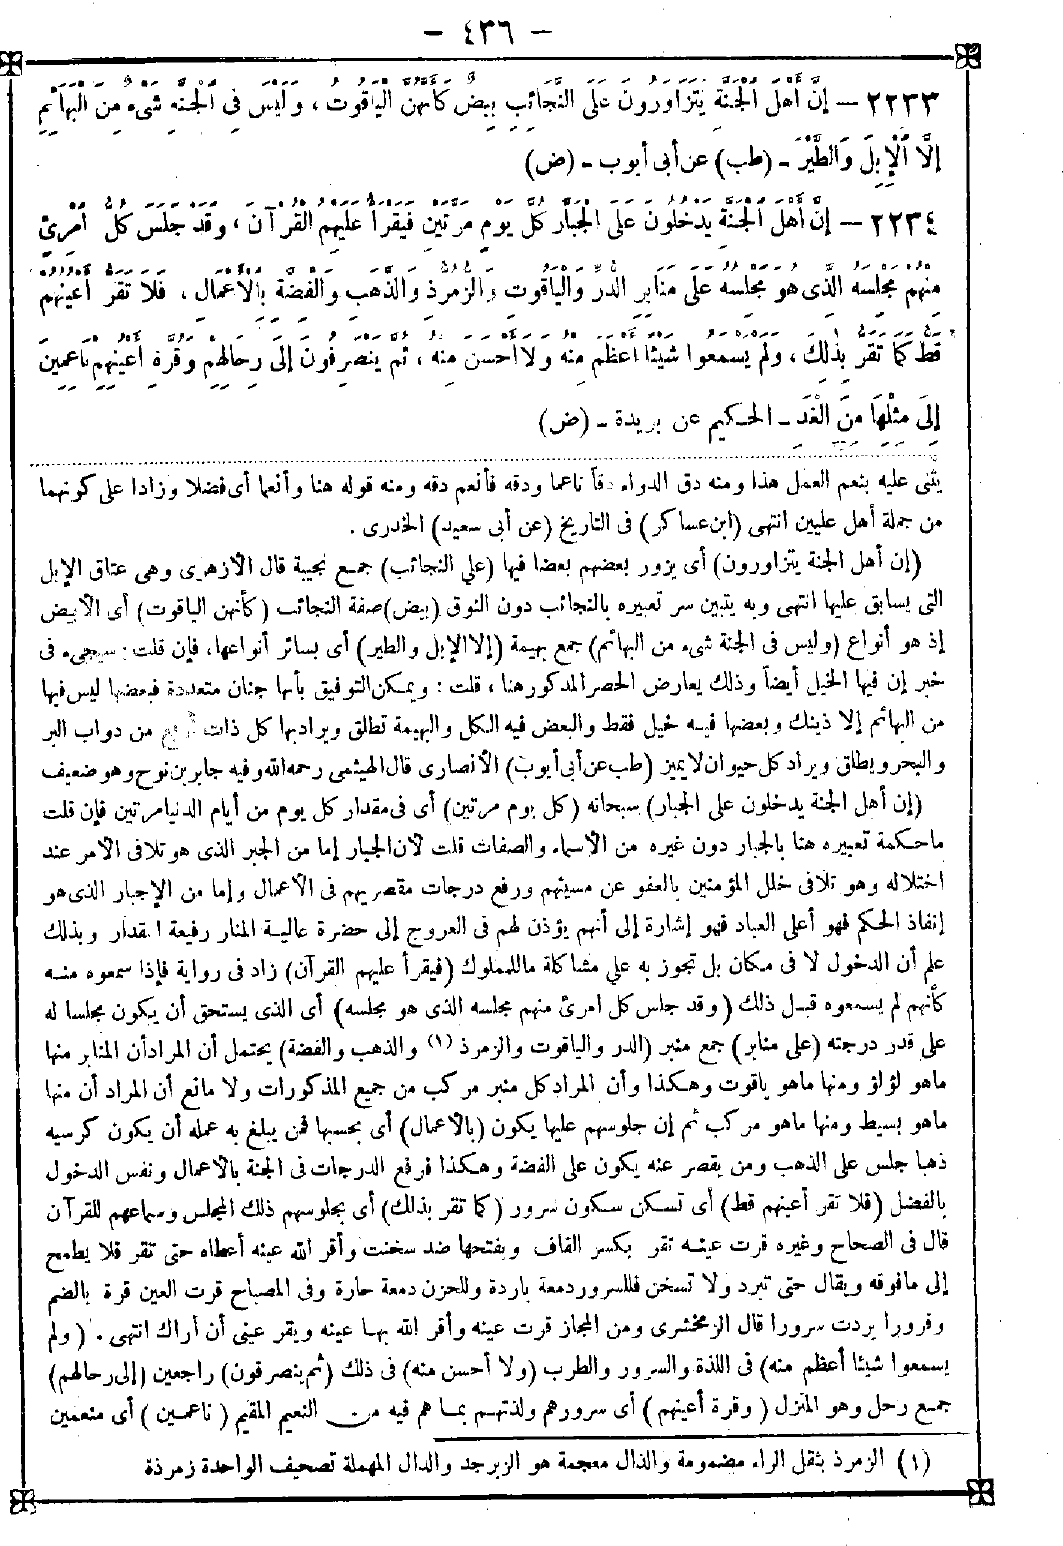 - ٤٣٦ -
٢٢٣٣ - إِنَّ أَهْلَ الْجَنَّةِ يَتَزَاوَرُونَ عَلَى النَّجَائِبِ بِيضٌ كَأَنَّهُنَّ الْيَاقُوتُ ، وَلَيْسَ فِي الْجَنَّةِ شَيْءٌ مِنَ الْبَهَائِمِ
إِلَّا الْإِبِلَ وَالطَّيْرَ - (طب) عن أبى أيوب - (ض)
٢٢٣٤ - إِنَّ أَهْلَ الْجَنَّةِ يَدْخُلُونَ عَلَى الْجَبَّارِ كُلَّ يَوْمٍ مَرَّتَيْنِ فَيَقْرَأُ عَلَيْهِمُ الْقُرْآنَ ، وَقَدْ جَلَسَ كُلُّ أَمْرِئٍ
مِنْهُمْ مَجْلِسَهُ الَّذِي هُوَ مَجْلِسُهُ عَلَى مَنَابِرِ الدُّرِّ وَالْيَاقُوتِ وَالزُّمُرُّذِ وَالذَّهَبِ وَالْفِضَّةِ بِالْأَعْمَالِ ، فَلَا تَقَرُّ أَعْيُنُهُمْ
قَطُّ كَمَا تَقَرُّ بِذَلِكَ ، وَلَمْ يَسْمَعُوا شَيْئًا أَعْظَمَ مِنْهُ وَلَا أَحْسَنَ مِنْهُ ، ثُمَّ يَنْصَرِفُونَ إِلَى رِحَالِهِمْ وَقُرَّةِ أَعْيُنِهِمْ نَاعِمِينَ
إِلَى مِثْلِهَا مِنَ الْغَدِ - الحكيم عن بريدة - (ض)
يثنى عليه بنعم العمل هذا ومنه دق الدواء دقاً ناعما ودقه فأنعم دقه ومنه قوله هنا وأنعما أى فضلا وزادا على كونهما
من جملة أهل عليين انتهى (ابن عساكر) فى التاريخ (عن أبى سعيد) الخدرى .
(إن أهل الجنة يتزاورون) أى يزور بعضهم بعضا فيها (على النجائب) جمع نجيبة قال الأزهرى وهى عتاق الإبل
التى يسابق عليها انتهى وبه يتبين سر تعبيره بالنجائب دون النوق (بيض) صفة النجائب (كأنهن الياقوت) أى الأبيض
إذ هو أنواع (وليس فى الجنة شىء من البهائم) جمع بهيمة (إلا الإبل والطير) أى بسائر أنواعها، فإن قلت: سيجىء فى
خبر إن فيها الخيل أيضاً وذلك يعارض الحصر المذكور هنا ، قلت : ويمكن التوفيق بأنها جنان متعددة فبعضها ليس فيها
من البهائم إلا ذينك وبعضها فيه خيل فقط والبعض فيه الكل والبهيمة تطلق ويراد بها كل ذات أربع من دواب البر
والبحر ويطلق ويراد كل حيوان لا يميز (طب عن أبى أيوب) الأنصارى قال الهيثمى رحمه الله وفيه جابر بن نوح وهو ضعيف
(إن أهل الجنة يدخلون على الجبار) سبحانه (كل يوم مرتين) أى فى مقدار كل يوم من أيام الدنيا مرتين فإن قلت
ما حكمة تعبيره هنا بالجبار دون غيره من الأسماء والصفات قلت لأن الجبار إما من الجبر الذى هو تلافى الأمر عند
اختلاله وهو تلافى خلل المؤمنين بالعفو عن مسيئهم ورفع درجات مقصريهم فى الأعمال وإما من الإجبار الذى هو
إنفاذ الحكم فهو أعلى العباد فهو إشارة إلى أنهم يؤذن لهم فى العروج إلى حضرة عالية المنار رفيعة المقدار وبذلك
علم أن الدخول لا فى مكان بل تجوز به على مشاكلة ما للملوك (فيقرأ عليهم القرآن) زاد فى رواية فإذا سمعوه منه
كأنهم لم يسمعوه قبل ذلك (وقد جلس كل امرئ منهم مجلسه الذى هو مجلسه) أى الذى يستحق أن يكون مجلسا له
على قدر درجته (على منابر) جمع منبر (الدر والياقوت والزمرذ (١) والذهب والفضة) يحتمل أن المراد أن المنابر منها
ماهو لؤلؤ ومنها ماهو ياقوت وهكذا وأن المراد كل منبر مركب من جميع المذكورات ولا مانع أن المراد أن منها
ماهو بسيط ومنها ماهو مركب ثم إن جلوسهم عليها يكون (بالأعمال) أى بحسبها فمن يبلغ به عمله أن يكون كرسيه
ذهبا جلس على الذهب ومن يقصر عنه يكون على الفضة وهكذا فرفع الدرجات فى الجنة بالأعمال ونفس الدخول
بالفضل (فلا تقر أعينهم قط) أى تسكن سكون سرور (كما تقر بذلك) أى بجلوسهم ذلك المجلس وسماعهم للقرآن
قال فى الصحاح وغيره قرت عينه تقر بكسر القاف وبفتحها ضد سخنت وأقر الله عينه أعطاه حتى تقر فلا يطمح
إلى مافوقه ويقال حتى تبرد ولا تسخن فللسرور دمعة باردة وللحزن دمعة حارة وفى المصباح قرت العين قرة بالضم
وقرورا بردت سرورا قال الزمخشرى ومن المجاز قرت عينه وأقر الله بها عينه ويقر عينى أن أراك انتهى . (ولم
يسمعوا شيئا أعظم منه) فى اللذة والسرور والطرب (ولا أحسن منه) فى ذلك (ثم ينصرفون) راجعين (إلى رحالهم)
جمع رحل وهو المنزل (وقرة أعينهم) أى سرورهم ولذتهم بما هم فيه من النعيم المقيم (ناعمين) أى منعمين
(١) الزمرذ بثقل الراء مضمومة والذال معجمة هو الزبرجد والدال المهملة تصحيف الواحدة زمرذة